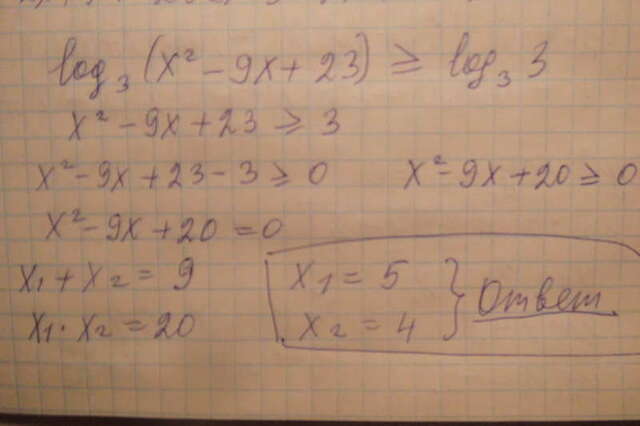 log₃(x² - 9x + 23) ≥ log₃ 3
x² - 9x + 23 ≥ 3
x² - 9x + 23 - 3 ≥ 0 x² - 9x + 20 ≥ 0
x² - 9x + 20 = 0
x₁ + x₂ = 9
x₁ · x₂ = 20
x₁ = 5
x₂ = 4 } Ответ.